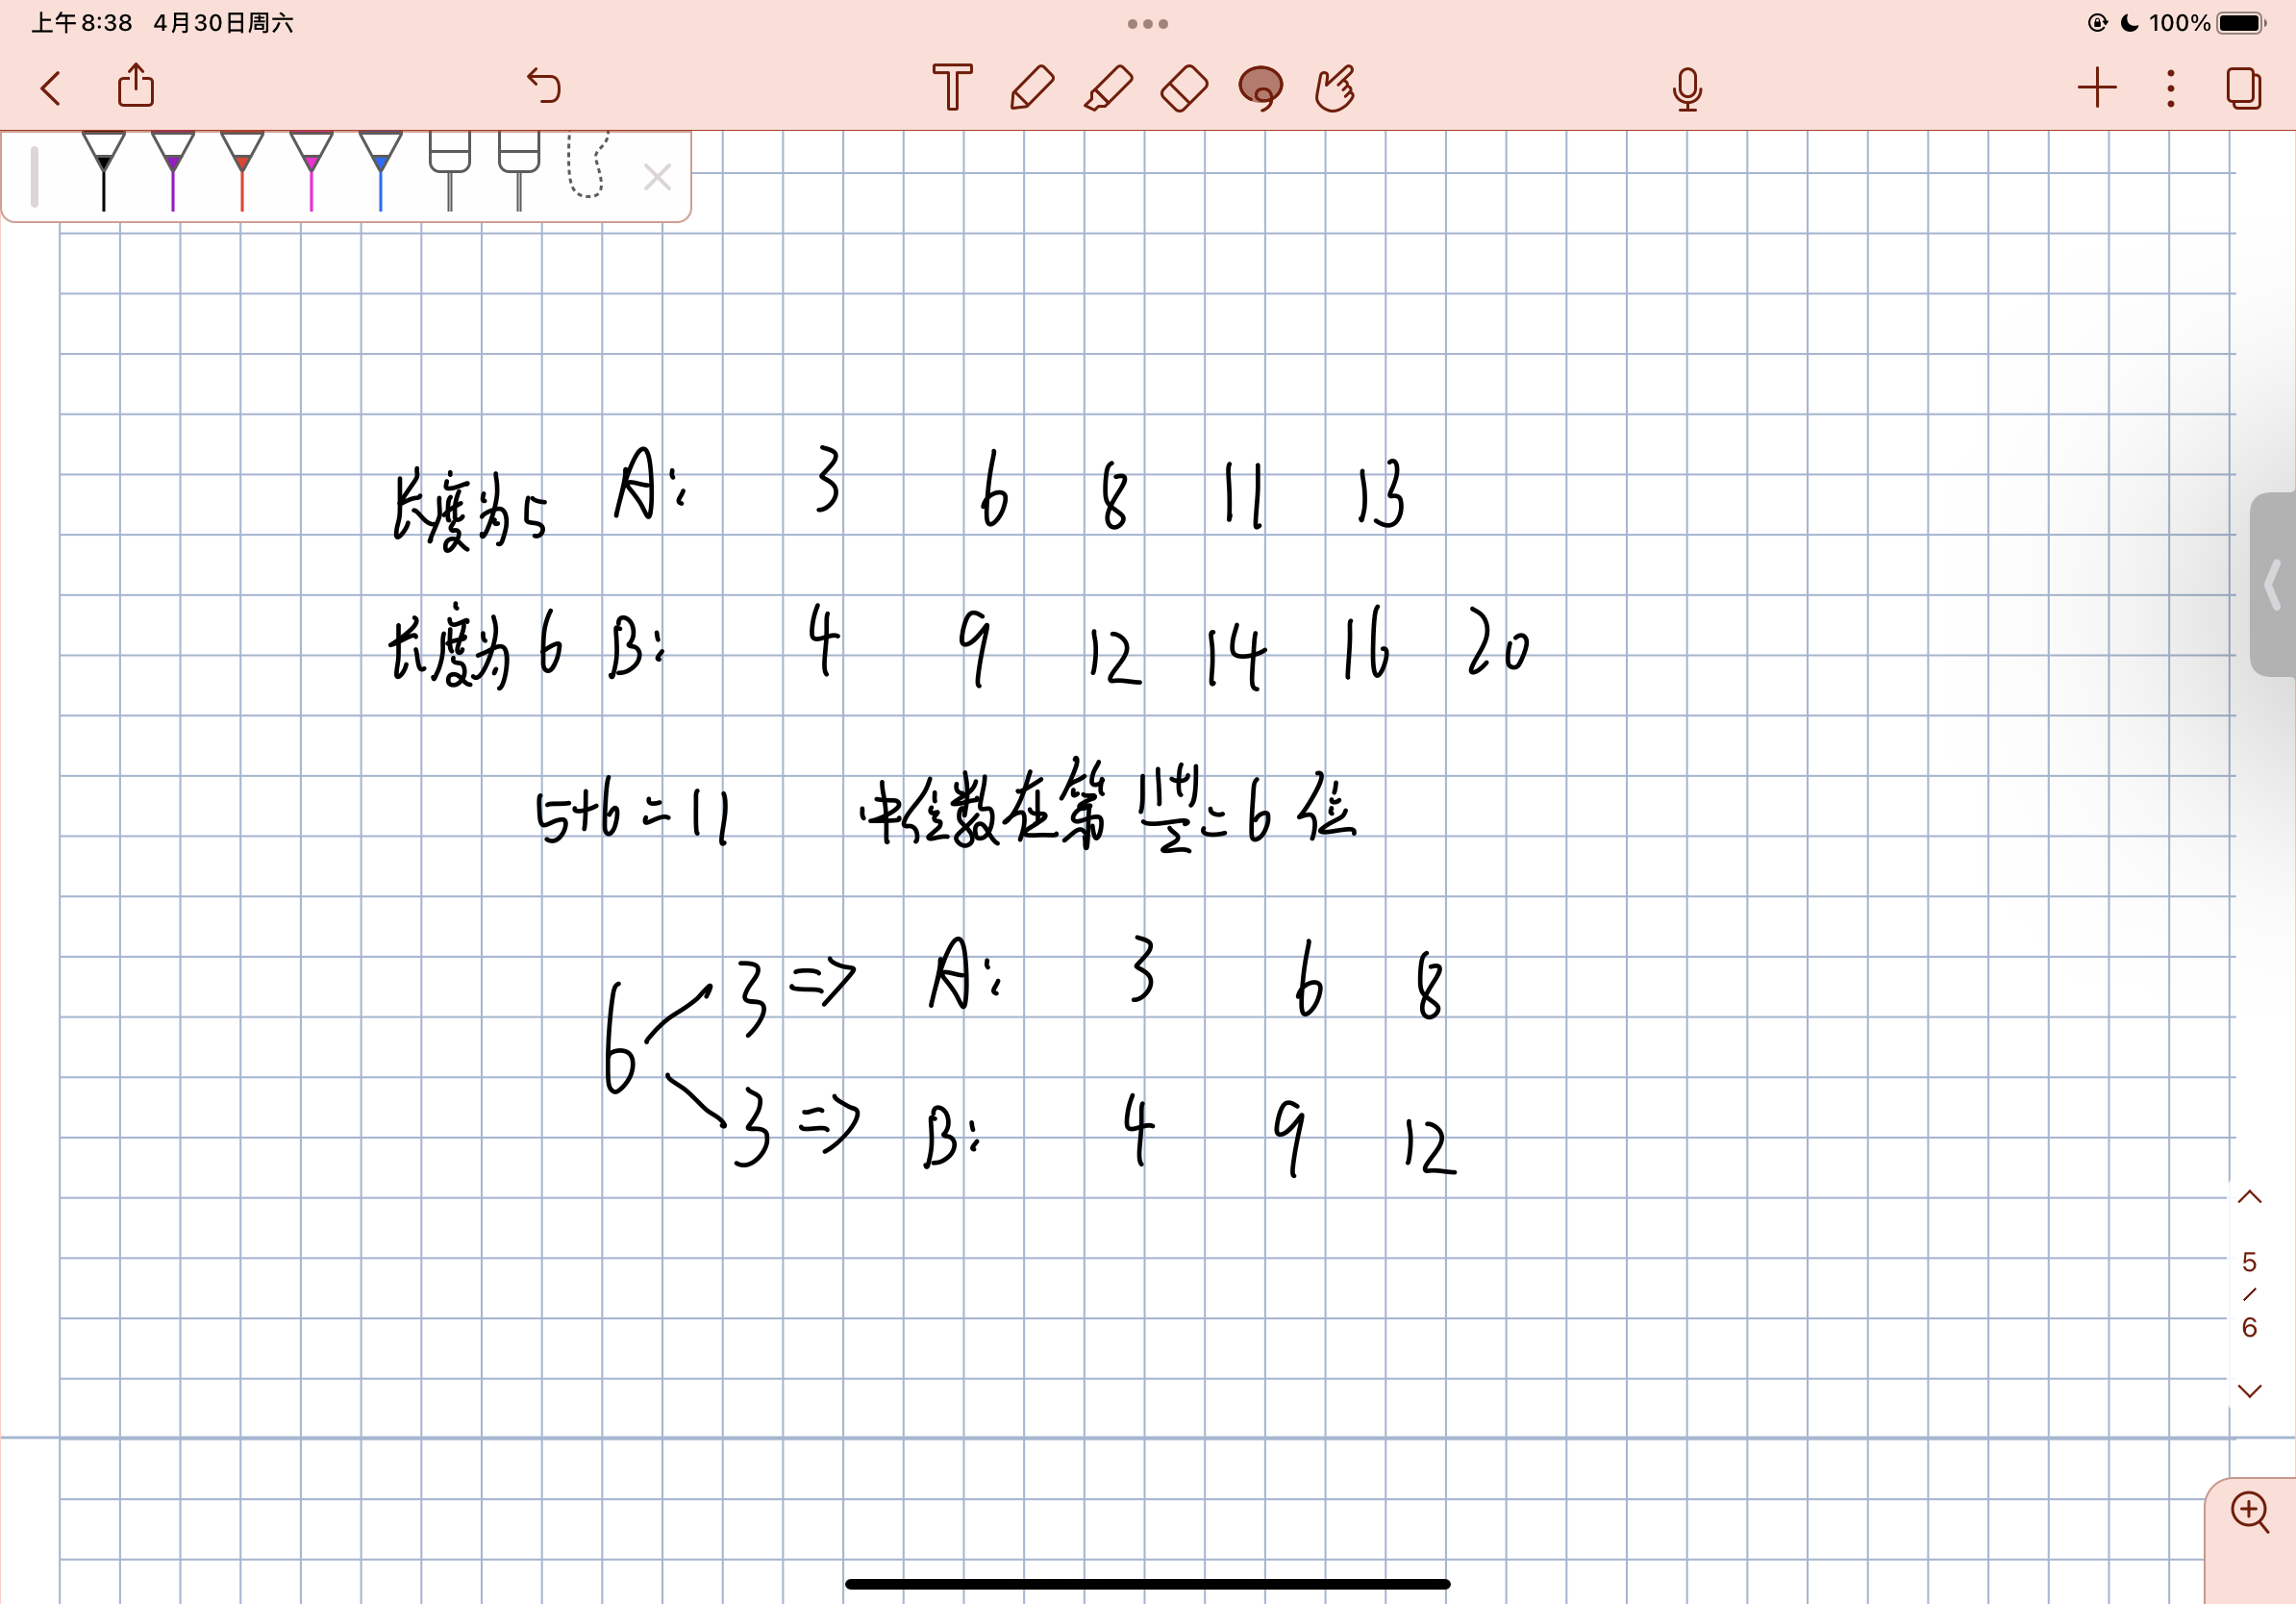 上午8:38 4月30日周六 100%
长度为5 A: 3 6 8 11 13
长度为6 B: 4 9 12 14 16 20
5+6=11 中位数在第 (11+1)/2=6 位
6
3 => A: 3 6 8
3 => B: 4 9 12
5
/
6